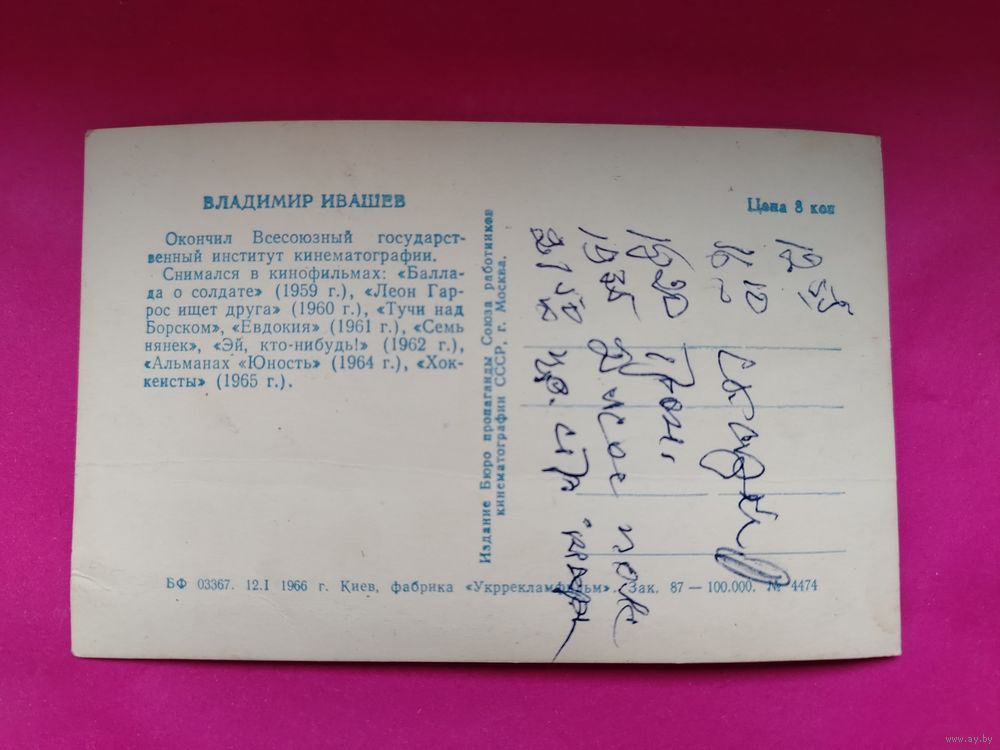 ВЛАДИМИР ИВАШЕВ
Окончил Всесоюзный государст-
венный институт кинематографии.
Снимался в кинофильмах: «Балла-
да о солдате» (1959 г.), «Леон Гар-
рос ищет друга» (1960 г.), «Тучи над
Борском», «Евдокия» (1961 г.), «Семь
нянек», «Эй, кто-нибудь!» (1962 г.),
«Альманах «Юность» (1964 г.), «Хок-
кеисты» (1965 г.).
Издание Бюро пропаганды Союза работников
кинематографии СССР, г. Москва.
Цена 8 коп
12 55
16 10
19 20
19 35
21 50
БФ 03367. 12.I 1966 г. Киев, фабрика «Укррекламфильм». Зак. 87 — 100.000. № 4474
www.ay.by